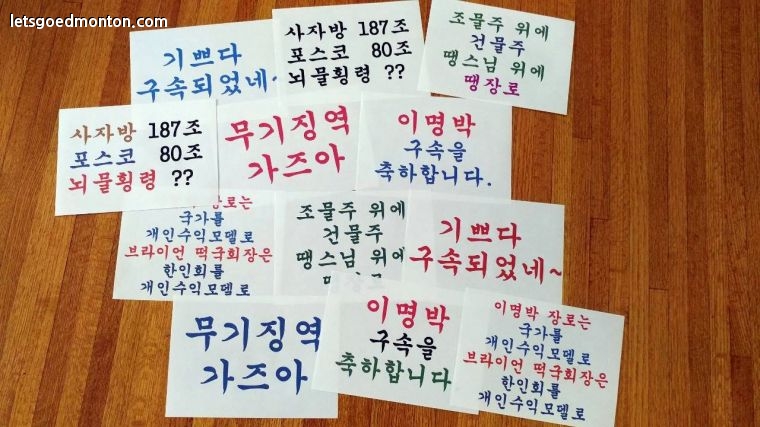 letsgoedmonton.com
기쁘다
구속되었네~
사자방 187조
포스코 80조
뇌물횡령 ??
조물주 위에
건물주
땡스님 위에
땡장로
사자방 187조
포스코 80조
뇌물횡령 ??
무기징역
가즈아
이명박
구속을
축하합니다.
장로는
국가를
개인수익모델로
브라이언 떡국회장은
한인회를
개인수익모델로
조물주 위에
건물주
땡스님 위에
기쁘다
구속되었네~
무기징역
가즈아
이명박
구속을
축하합니다
이명박 장로는
국가를
개인수익모델로
브라이언 떡국회장은
한인회를
개인수익모델로